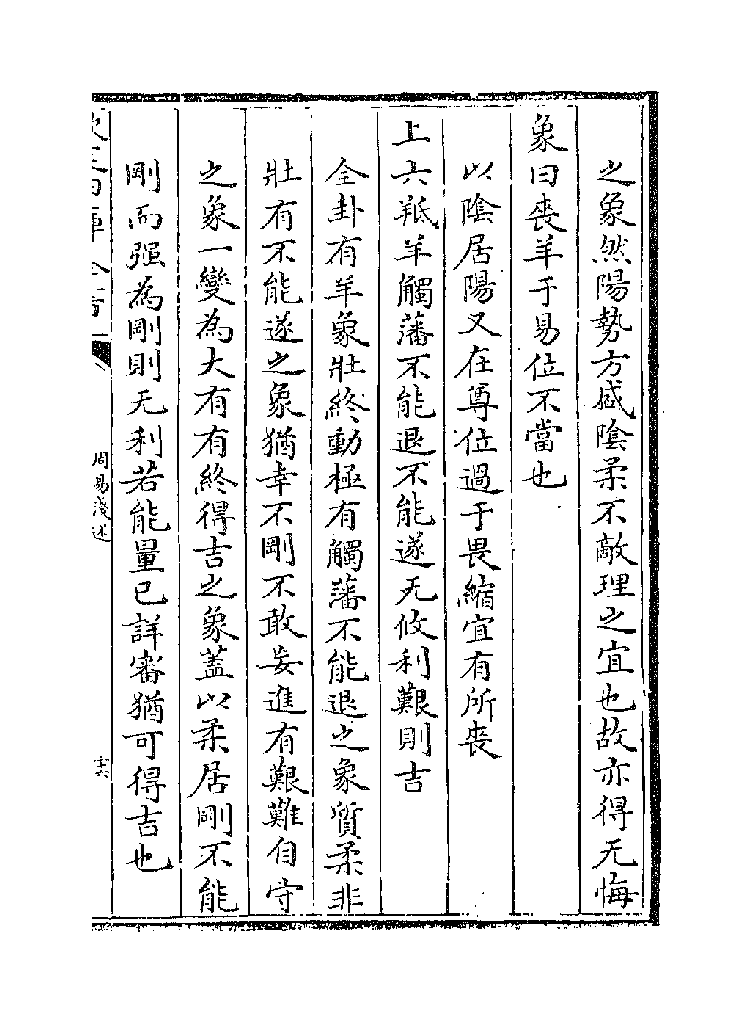 之象然陽勢方盛陰柔不敵理之宜也故亦得无悔
象曰喪羊于易位不當也
以陰居陽又在尊位過于畏縮宜有所喪
上六羝羊觸藩不能退不能遂无攸利艱則吉
全卦有羊象壯終動極有觸藩不能退之象質柔非
壯有不能遂之象猶幸不剛不敢妄進有艱難自守
之象一變為大有有終得吉之象蓋以柔居剛不能
剛而强為剛則无利若能量已詳審猶可得吉也
周易淺述